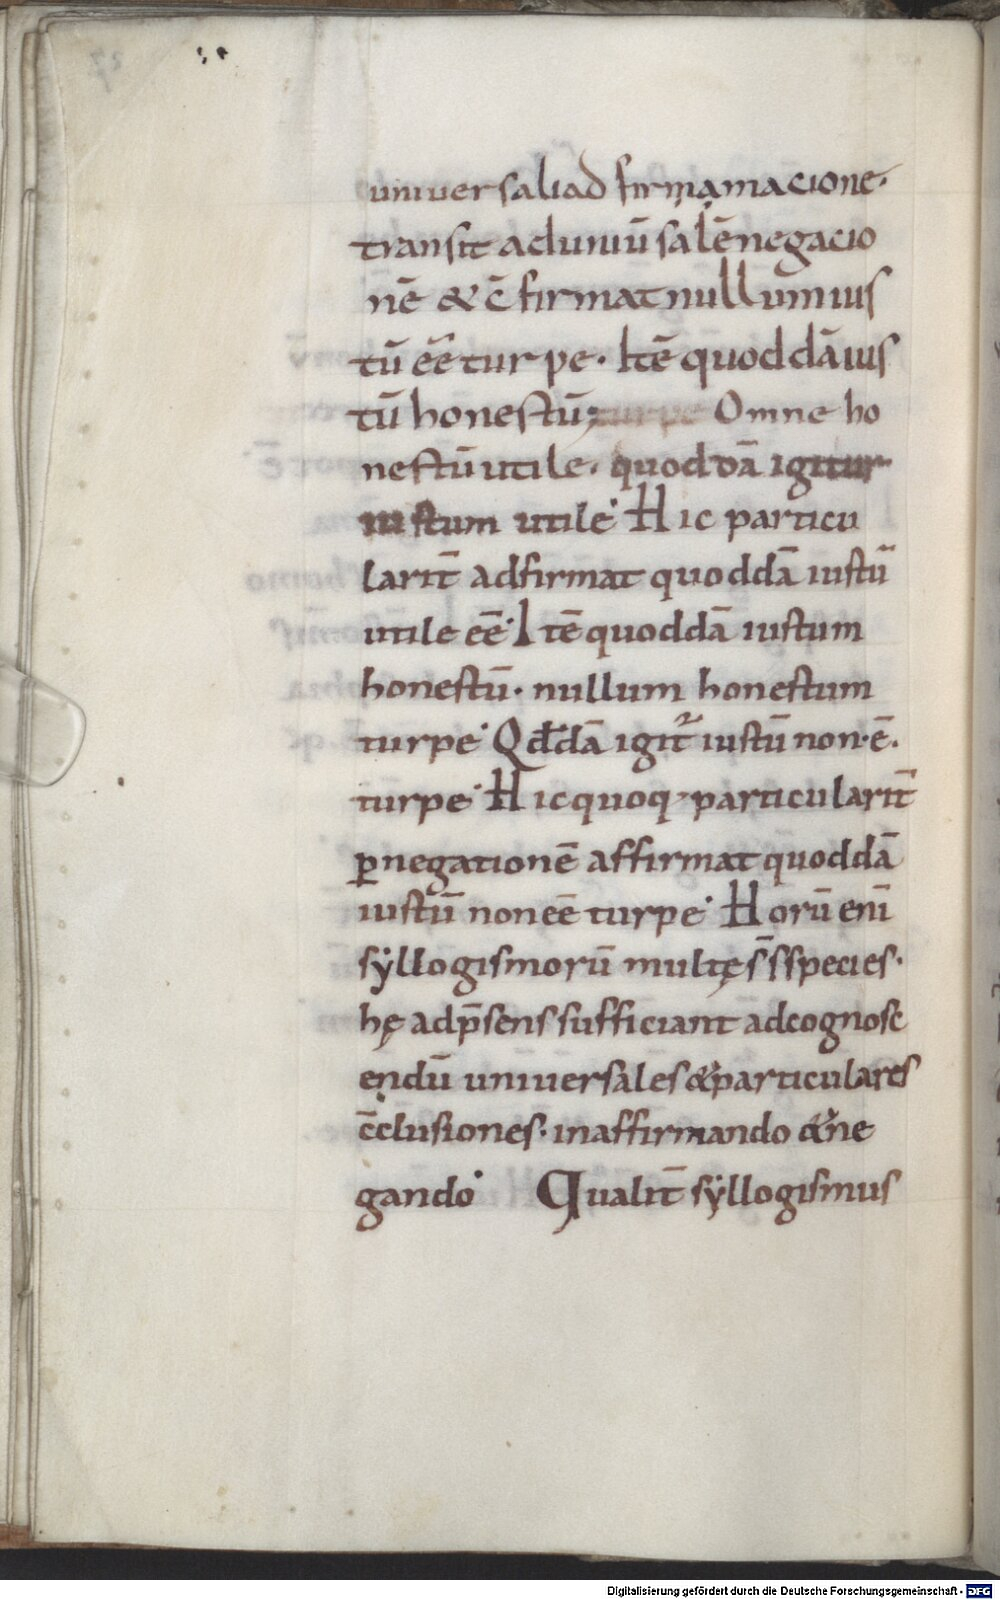 uniuersaliad firmamacione·
transit aduniūsalēnegacio
nē & c̄firmatnullumius
tū eē turpe· Itē quoddāius
tū honestū; turpe Omne ho
nestū utile· quoddā igitur
iustum utile· Hic particu
larit̄ adfirmat quoddā iustū
utile eē· Itē quoddā iustum
honestū· nullum honestum
turpe· Qđdā igit̄ iustū non·ē·
turpe· Hic quoq· particularit̄
ꝑnegationē affirmat quoddā
iustū non eē turpe· Horū eni̅
syllogismorū multę s̄ species·
hę adp̄sens sufficiant adcognosc
endū uniuersales &particulares
c̄clusiones· inaffirmando &ne
gando· Qualit̄ syllogismus
Digitalisierung gefördert durch die Deutsche Forschungsgemeinschaft - DFG